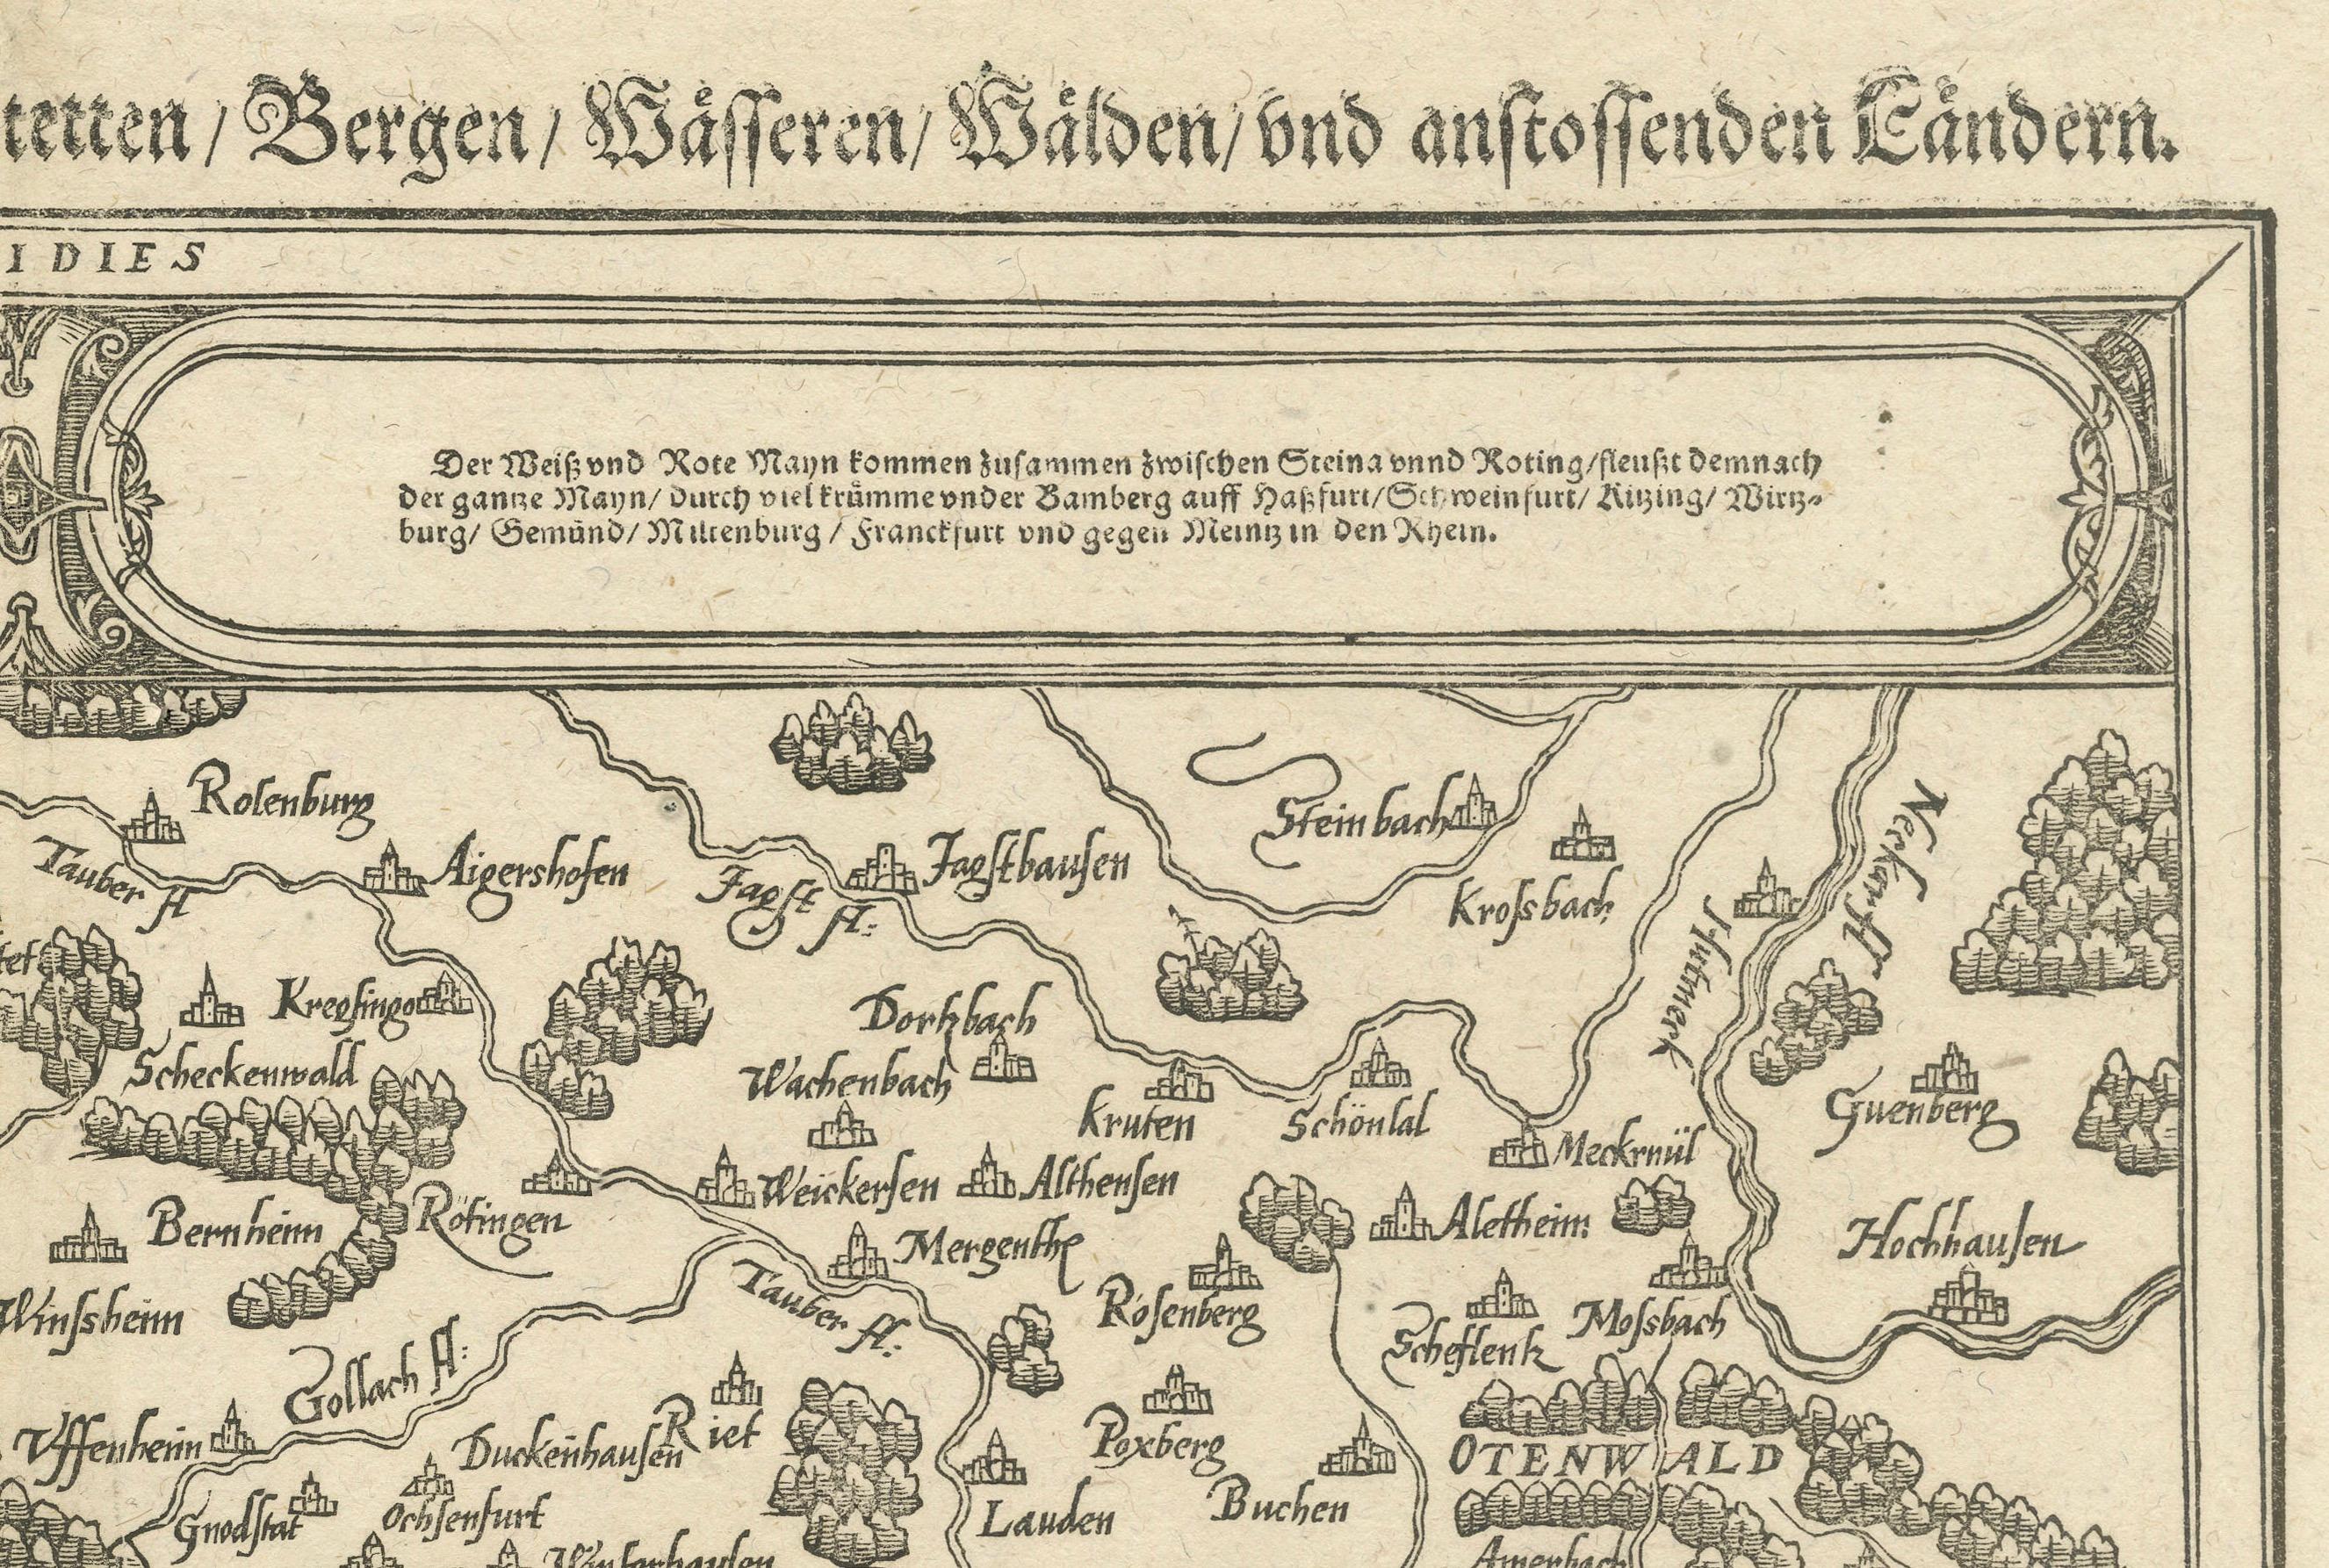 tetten / Bergen / Wåsseren / Wålden / vnd anstossenden Låndern.
IDIES
Der Weiß vnd Rote Mayn kommen zusammen zwischen Steina vnnd Roting / fleußt demnach
der gantze Mayn / durch viel krümme vnder Bamberg auff Haßfurt / Schweinfurt / Kitzing / Wirtz-
burg / Gemünd / Miltenburg / Franckfurt vnd gegen Meintz in den Rhein.
Rotenburg
Tauber fl
Aigershofen
Jagst fl:
Jagsthausen
Steinbach
Krossbach
Neckar fl
Scheckenwald
Dortzbach
Wachenbach
Kruten
Schöntal
Meckmül
Guenberg
Weickersen
Althensen
Aletheim
Bernheim
Rötingen
Mergenthe
Hochhausen
Winssheim
Tauber fl:
Rosenberg
Scheflentz
Mossbach
Gollach fl:
Vffenheim
Duckenhausen
Riet
Poxberg
Buchen
OTENWALD
Gnodstat
Ochsenfurt
Lauden
Amerbach